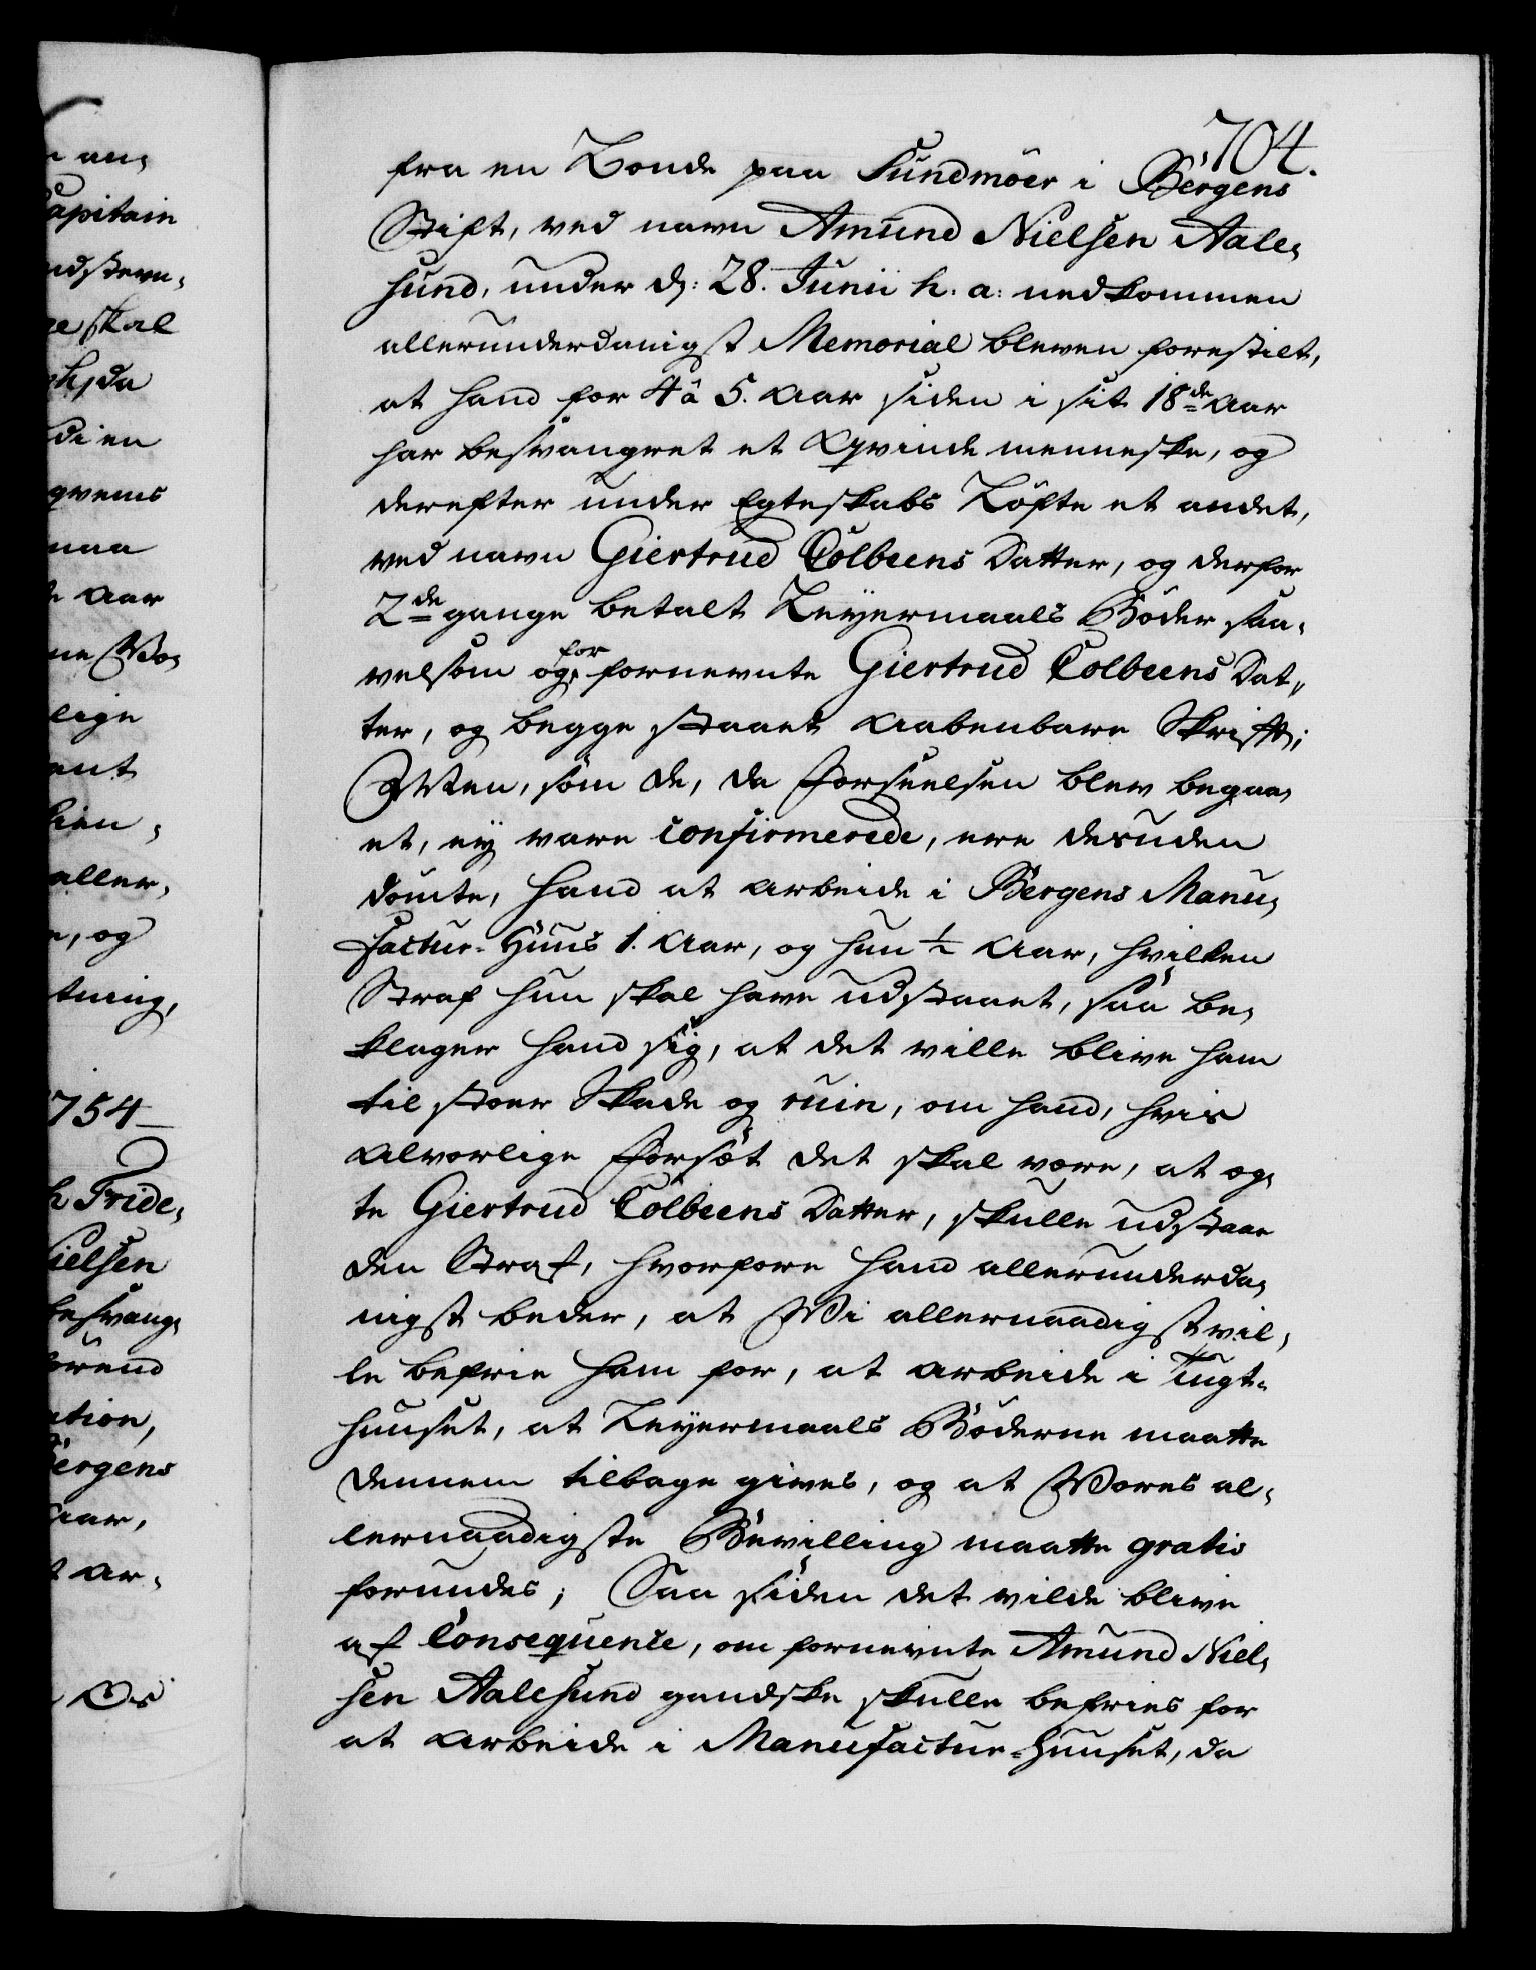 704.
fra en Bonde paa Sundmöer i Bergens
Stift, ved navn Amund Nielsen Aale,
sund, under d: 28. Junii h. a: nedkommen
allerunderdanigst Memorial bleven forestilt,
at hand for 4 à 5. Aar siden i sit 18de Aar
har besvangret et Qvinde menneske, og
derefter under Egteskabs Löfte et andet,
ved navn Giertrud Colbeens Datter, og derfor
2de gange betalt Leyermaals Böder saa,
velsom og for fornevnte Giertrud Colbeens Dat,,
ter, og begge staaet aabenbare Skrifft;
Men, som de, da Forseelsen blev begaa,
et, ey vare confirmerede, ere desuden
dömte, hand at arbeide i Bergens Manu,
factur-Huus 1. Aar, og hun 1/2 Aar, hvilken
Straf hun skal have udstaaet, saa be,
klager hand sig, at det ville blive ham
til stoer Skade og ruin, om hand, hvis
alvorlige Forsæt det skal være, at æg,
te Giertrud Colbeens Datter, skulle udstaae
den Straf, hvorfore hand allerunderda,
nigst beder, at Wi allernaadigst vil,
le befrie ham for, at arbeide i Tugt-
huuset, at Leyermaals Böderne maatte
dennem tilbage gives, og at Vores al,
lernaadigste Bevilling maatte gratis
forundes; Saa siden det vilde blive
af Consequence, om fornevnte Amund Niel,
sen Aalesund gandske skulle befries for
at arbeide i Manufactur-Huuset, da
n an,
Capitain
skal
da
en
qvems
maa
Aar
Vo,
lige
aller,
, og
tning,
1754
Fride,
Nielsen
besvang,
ation,
Bergens
Aar,
ar,
Os